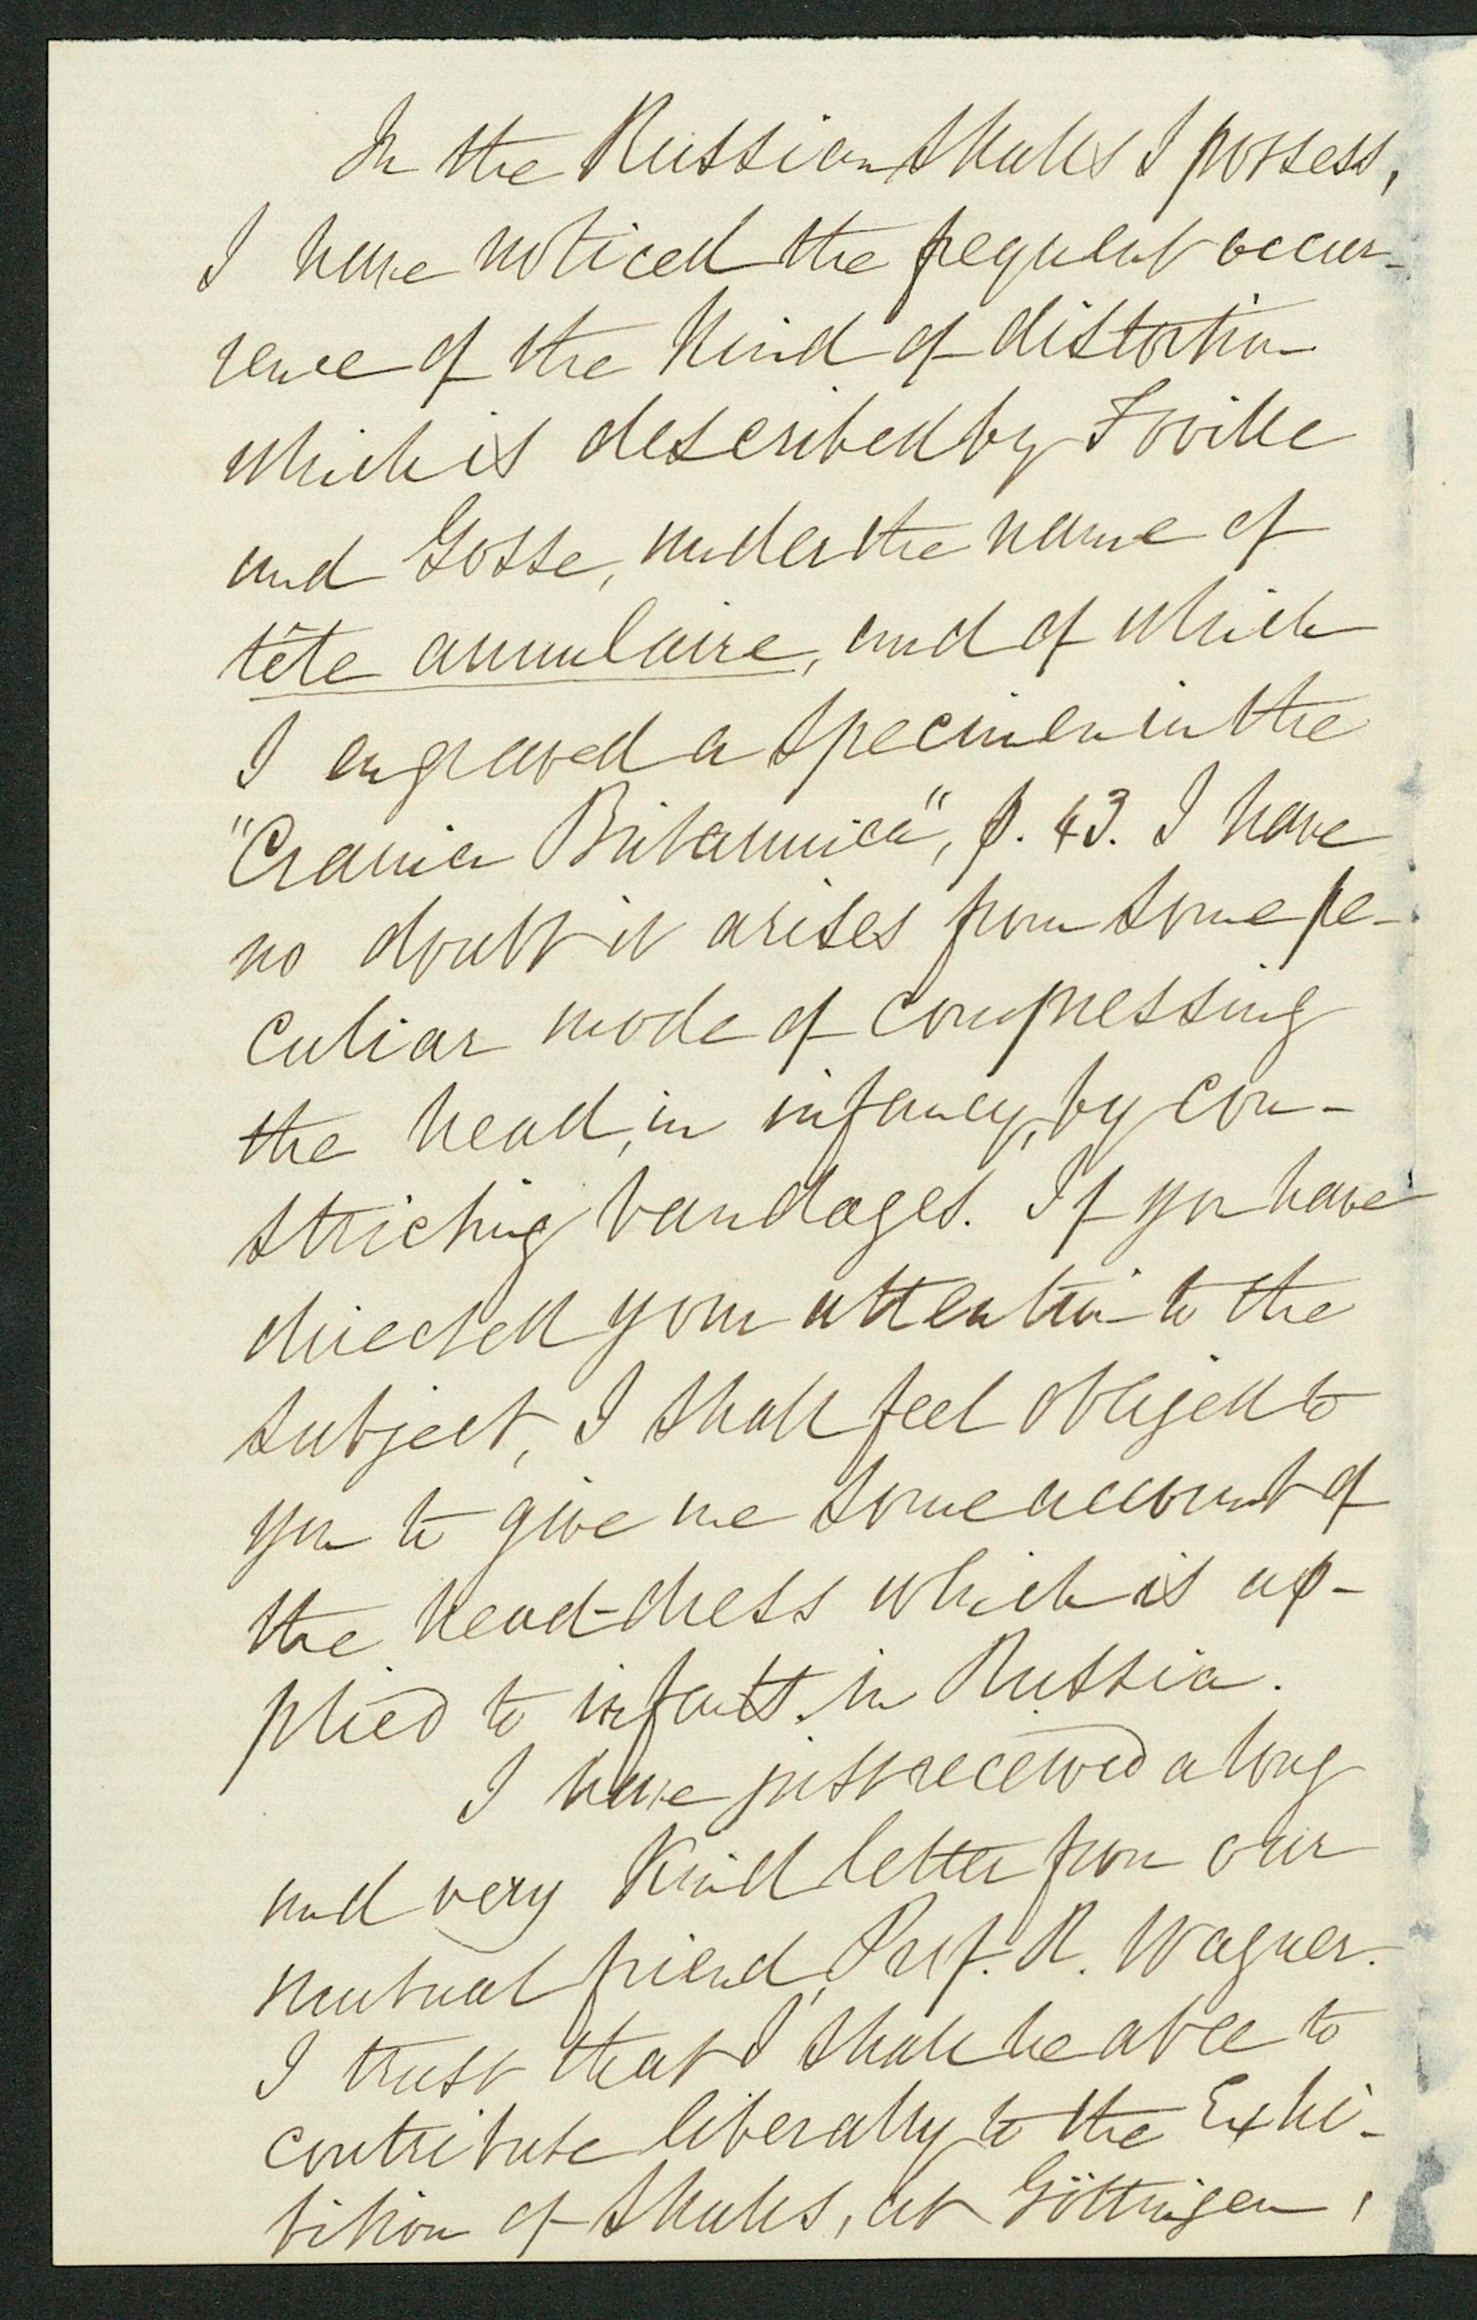 In the Russian skulls I possess,
I have noticed the frequent occur-
rence of the kind of distortion
which is described by Foville
and Gosse, under the name of
tête annulaire, and of which
I engraved a specimen in the
"Crania Britannica", p. 43. I have
no doubt it arises from some pe-
culiar mode of compressing
the head, in infancy, by con-
stricting bandages. If you have
directed your attention to the
subject, I shall feel obliged to
you to give me some account of
the head-dress which is ap-
plied to infants in Russia.
I have just received a long
and very kind letter from our
mutual friend, Prof. R. Wagner.
I trust that I shall be able to
contribute liberally to the Exhi-
bition of skulls, at Göttingen,